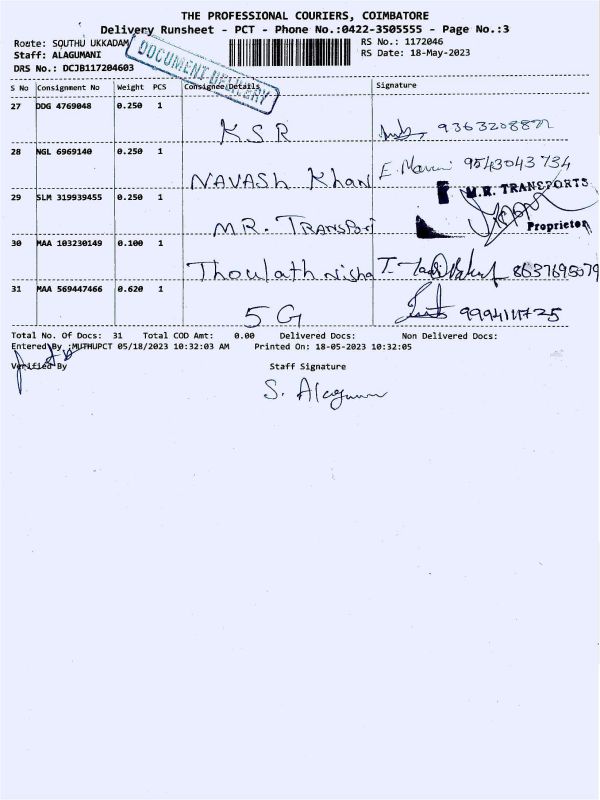 THE PROFESSIONAL COURIERS, COIMBATORE
Delivery Runsheet - PCT - Phone No.:0422-3505555 - Page No.:3
Route: SOUTHU UKKADAM
RS No.: 1172046
Staff: ALAGUMANI
RS Date: 18-May-2023
DRS No.: DCJB117204603
DOCUMENT DELIVERY
S No Consignment No Weight PCS Consignee Details Signature
27 DDG 4769048 0.250 1
KSR
28 NGL 6969140 0.250 1
NAVASh Khan E. 9543043734
29 SLM 319939455 0.250 1
M.R. TRANSPORTS
MR. TRANSPORT
Proprietor
30 MAA 103230149 0.100 1
Thoulath nisha 8637695079
31 MAA 569447466 0.620 1
5G
Total No. Of Docs: 31 Total COD Amt: 0.00 Delivered Docs: Non Delivered Docs:
Entered By :MUTHUPCT 05/18/2023 10:32:03 AM Printed On: 18-05-2023 10:32:05
Verified By Staff Signature